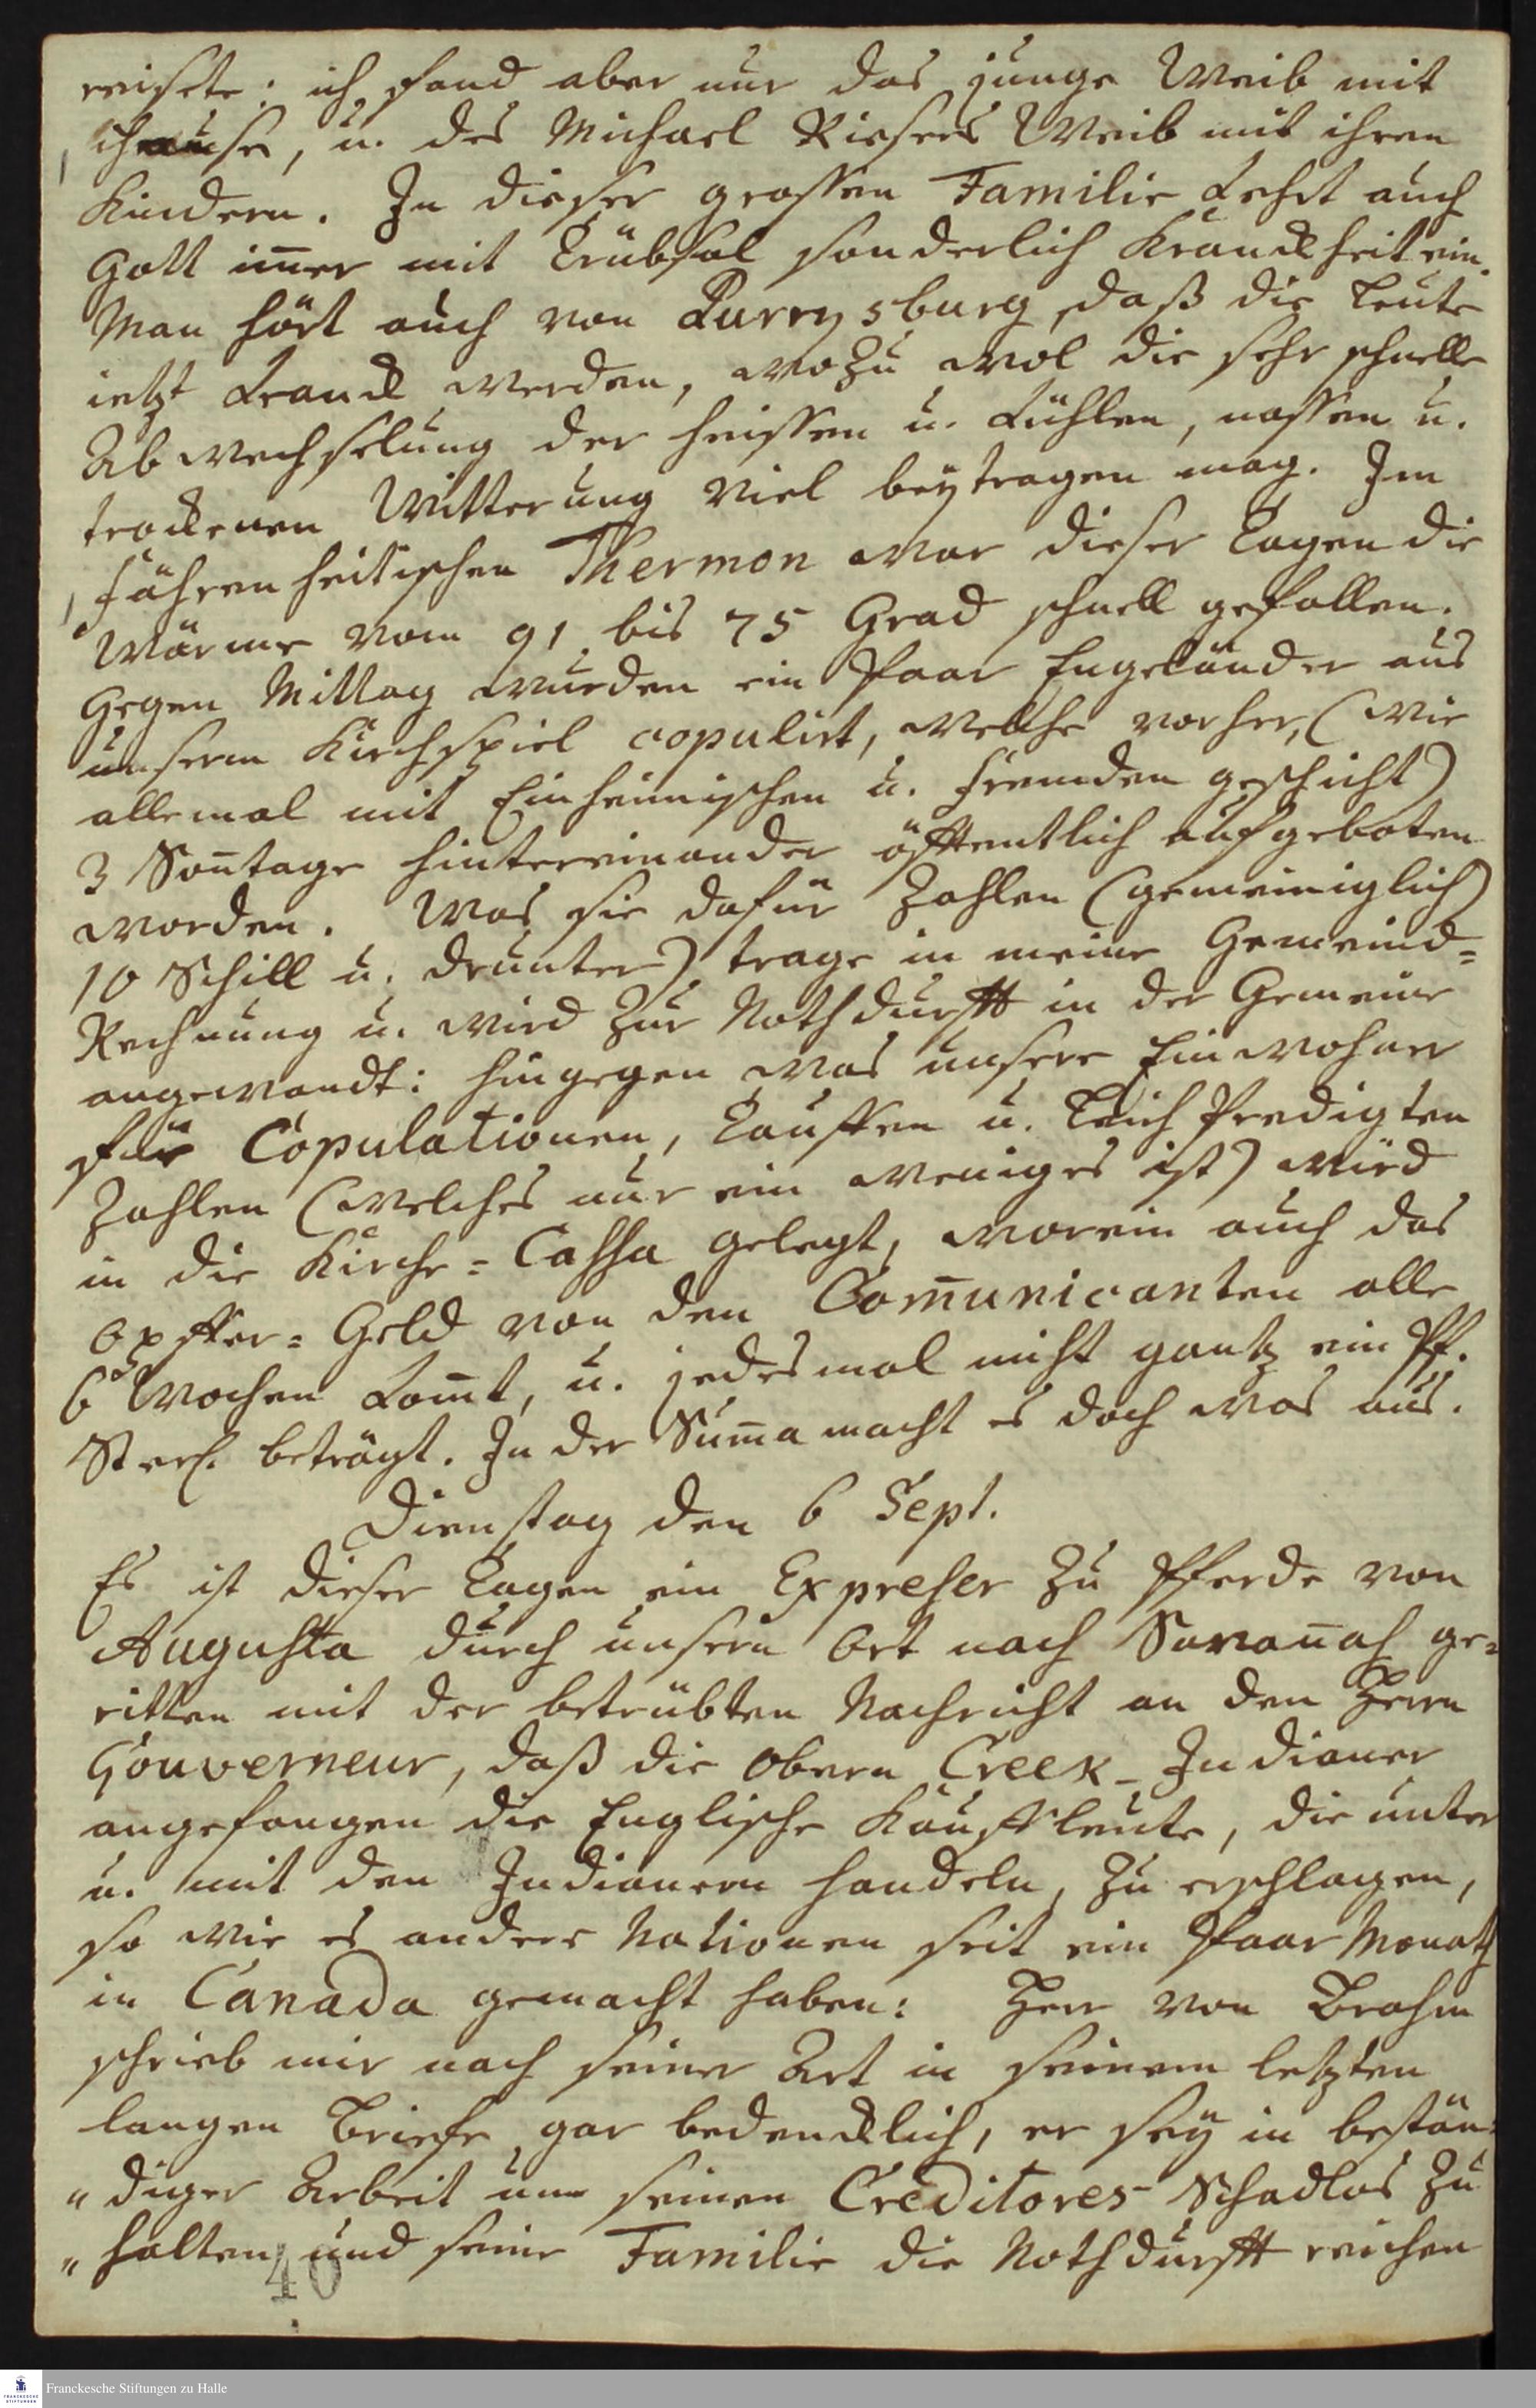 reisete: ich fand aber nur das junge Weib mit
, u. des Michael Riesers Weib mit ihren
Kindern. In dieser grossen Familie kehrt auch
Gott im̄er mit Trübsal sonderlich Kranckheit ein.
Man hört auch von Purrysburg, daß die Leute
ietzt kranck werden, wozu wol die sehr schnelle
Abwechselung der heissen u. kühlen, nassen u.
trockenen Witterung viel beytragen mag. Im
Fährenheitischen Thermon war dieser Tagen die
Wärme vom 91 bis 75 Grad schnell gefallen.
Gegen Mittag wurden ein Paar Engeländer aus
unserm Kirchspiel copulirt, welche vorher, (wie
allemal mit Einheimischen u. Fremden geschicht)
3 Son̄tage hintereinander öffentlich aufgeboten
worden. Was sie dafür zahlen (gemeiniglich
10 Schill u. drunter) trage in meine Gemeind=
Rechnung u. wird zur Nothdurfft in der Gemeine
angewandt: hingegen was unsere Einwohner
für Copulationen, Tauffen u. Leich Predigten
zahlen (welches nur ein weniges ist) wird
in die Kirche=Cassa gelegt, worein auch das
Opffer=Geld von den Com̄unicanten alle
6 Wochen kom̄t, u. jedesmal nicht gantz ein Pf.
Sterl. beträgt. In der Sum̄a macht es doch was aus.
Dienstag den 6 Sept.
Es ist dieser Tagen ein Expresser zu Pferde von
Augusta durch unsern Ort nach Savan̄ah ge=
ritten mit der betrübten Nachricht an den Herrn
Gouverneur, daß die Obern Creek-Indianer
angefangen die Englische Kauffleute, die unter
u. mit den Indianern handeln, zu erschlagen,
so wie es andere Nationen seit ein Paar Monath
in Canada gemacht haben: Herr von Brahm
schrieb mir nach seiner Art in seinem letzten
langen Briefe gar bedencklich, er sey in bestän=
„ diger Arbeit um seinen Creditores Schadlos zu
„ halten und seine Familie die Nothdurfft reichen
40
Franckesche Stiftungen zu Halle